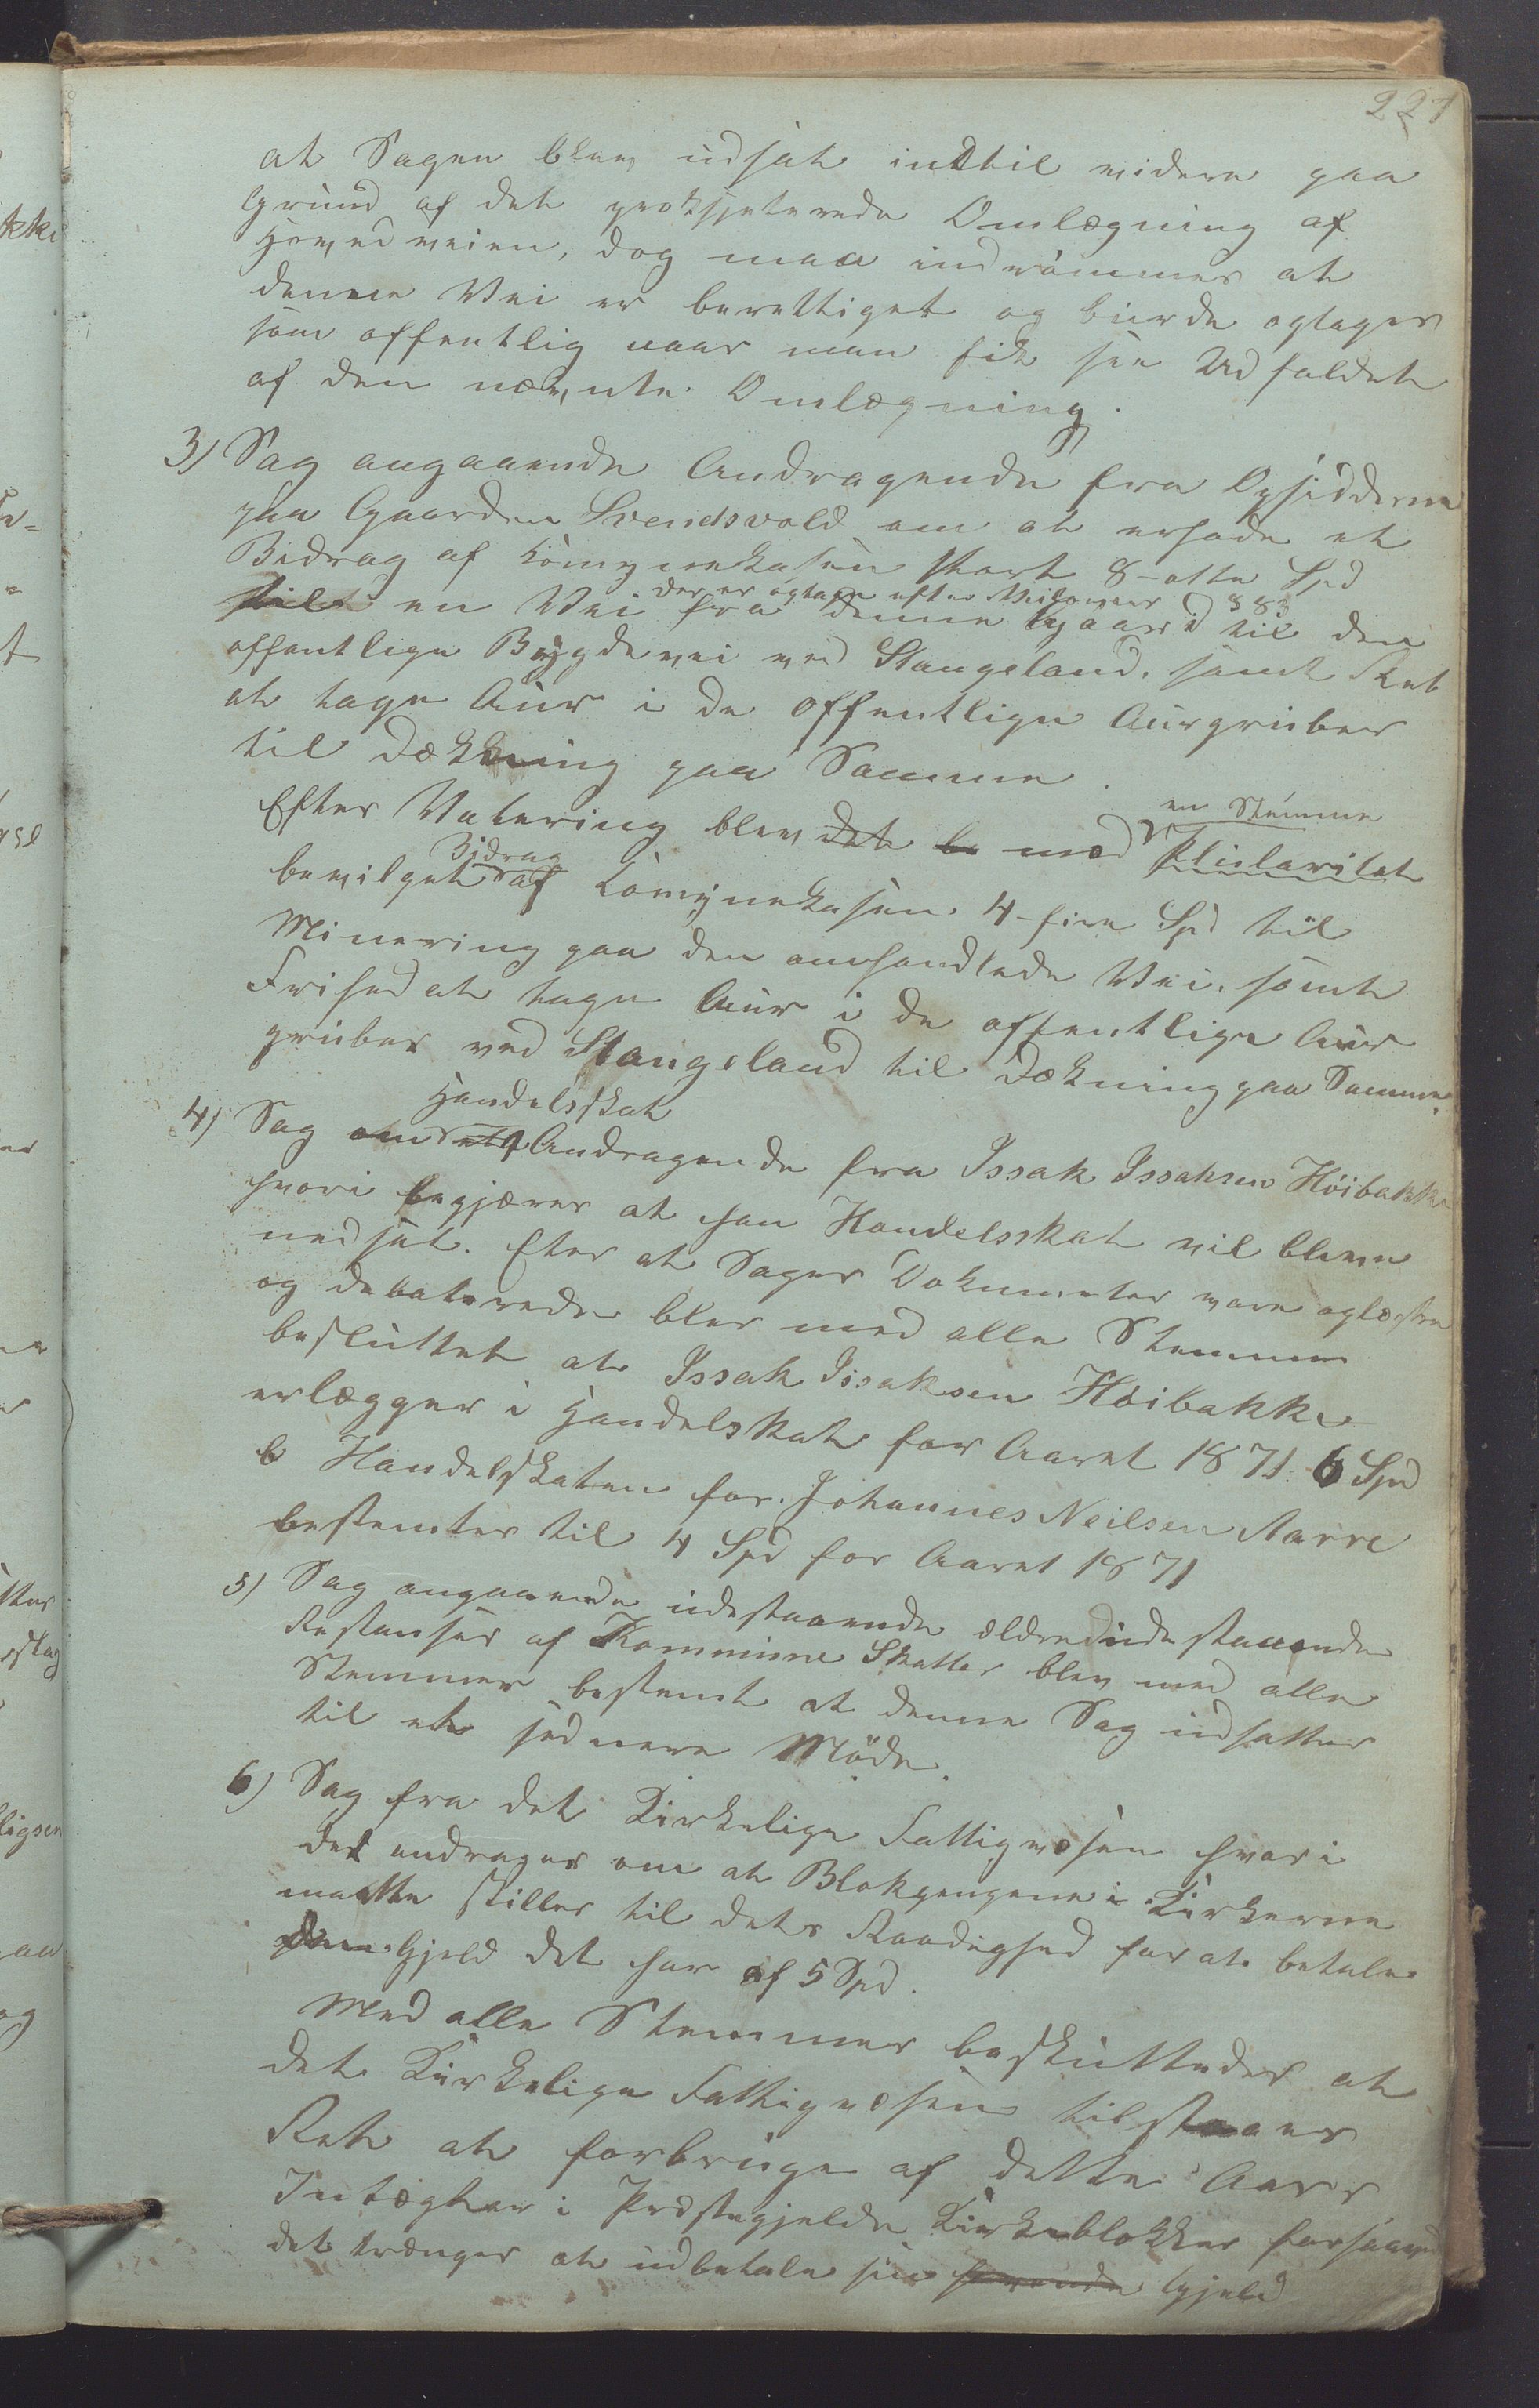 221
at Sagen blev udsat indtil videre paa
Grund af det prosjeterede Omlægning af
Hovedveien, dog maa indrømmes at
denne Vei er berettiget og burde optages
som offentlig naar man fik see Udfaldet
af den nævnte Omlægning.
3) Sag angaaende Andragende fra Opsidderne
paa Gaarden Svendsvold om at erholde et
Bidrag af Komynekasen stort 8-otte Spd
der er optagen efter Veilovens § 83
til en Vei fra denne Gaard til den
offentlige Bygdevei ved Stangeland, samt Ret
at tage Aur i de offentlige Aurgruber
til Dækkning paa Samme.
en Stemme
Efter Votering blev det be med Plularitet
Bidrag
bevilget af Komynekasen 4-fire Spd til
Minering paa den omhandlede Vei, samt
Frihed at tage Aur i de offentlige Aur
gruber ved Stangeland til Dækning paa Samme.
Handelsskat
4) Sag om et Andragende fra Issak Issaksen Höibakke
hvori begjærer at han Handelsskat vil bleve
nedsat. Efter at Sages Dokumenter vare oplæste
og debaterede blev med alle Stemmer
besluttet at Issak Issaksen Höibakke
erlægger i Handelskat for Aaret 1871. 6 Spd
b Handelskaten for Johannes Neilsen Aarre
bestemtes til 4 Spd for Aaret 1871
5) Sag angaaende udestaaende ældre udestaaende
Restanser af Kommune Skatter blev med alle
Stemmer bestemt at denne Sag udsattes
til et sednere Møde.
6) Sag fra det Kirkelige Fattigvæsen hvori
det andrages om at Blokpengene i Kirkerne
maatte stilles til dets Raadighed for at betale
den Gjeld det har af 5 Spd.
Med alle Stemmer besluttedes at
det Kirkelige Fattigvæsen tilstaaes
Ret at forbruge af dette Aars
Intægter i Præstegjeldes Kirkeblokker forsaavid
det trænger at udbetale sin Gjeld